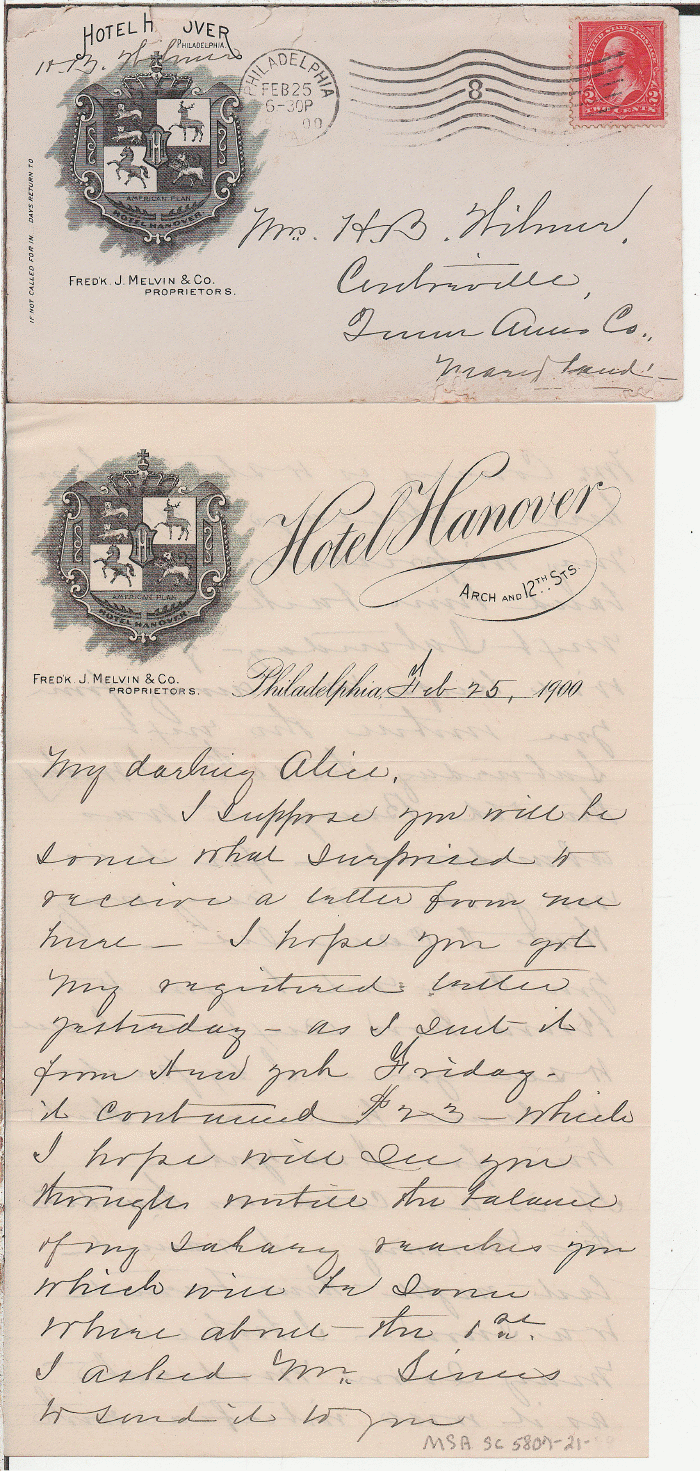 HOTEL H OVER
PHILADELPHIA.
H.B. Wilmer
PHILADELPHIA
FEB 25
6-30P
8
UNITED STATES POSTAGE
2 2
TWO CENTS
AMERICAN PLAN
HOTEL HANOVER
FRED'K. J. MELVIN & CO.
PROPRIETORS.
IF NOT CALLED FOR IN DAYS RETURN TO
Mrs. H.B. Wilmer,
Centreville,
Queen Annes Co.,
Maryland.
Hotel Hanover
ARCH AND 12TH STS.
AMERICAN PLAN
HOTEL HANOVER
FRED'K. J. MELVIN & CO.
PROPRIETORS.
Philadelphia, Feb 25, 1900
My darling Alice,
I suppose you will be
some what surprised to
receive a letter from me
here - I hope you got
my registered letter
yesterday - as I sent it
from New York Friday -
it contained $23 - which
I hope will see you
through untill the balance
of my salary reaches you
which will be some
where about the 1st.
I asked Mr. Sines
to send it to you
MSA SC 5807-21-